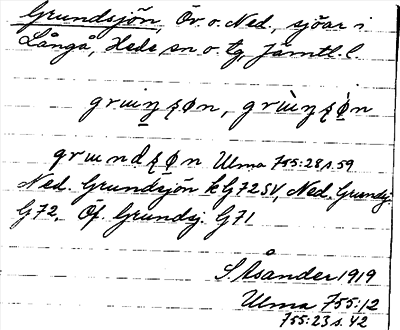 Grundsjön, Öv. o. Ned., sjöar i
Långå, Hede sn o. tg, Jämtl. l.
Ulma 755:28 s. 59
Ned. Grundsjön k G72 SV, Ned. Grundsj.
G72. Öf. Grundsj. G71
S. Åsander 1919
Ulma 755:12
755:23 s. 42